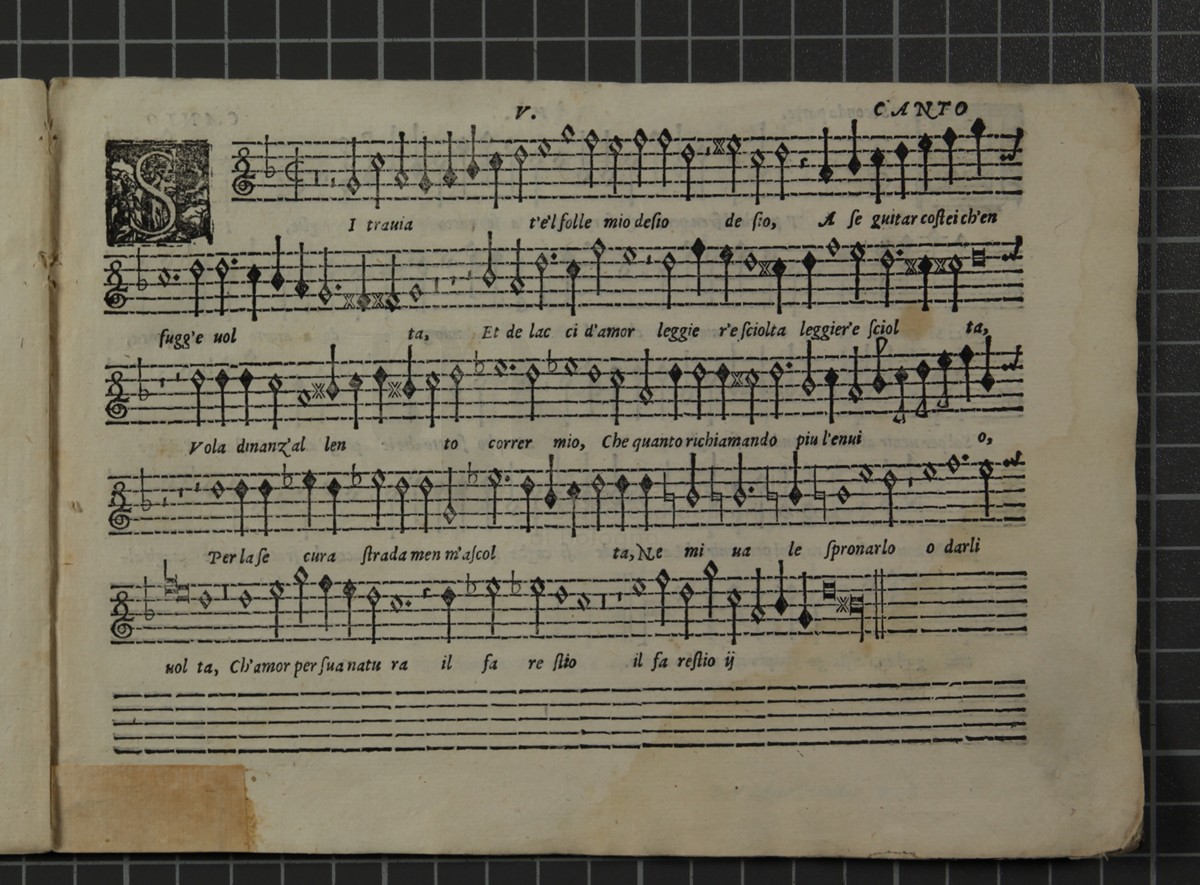 V. CANTO
SI trauia t'e'l folle mio desio de sio, A se guitar costei ch'en
fugg'e uol ta, Et de lac ci d'amor leggie r'e sciolta leggier'e sciol ta,
Vola dinanz'al len to correr mio, Che quanto richiamando piu l'enui o,
Per la se cura strada men m'ascol ta, Ne mi ua le spronarlo o darli
uol ta, Ch'amor per sua natu ra il fa re stio il fa restio ij